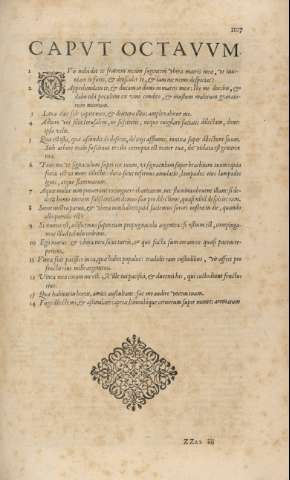 1107
CAPVT OCTAVVM.
1 QVis mihi det te fratrem meum sugentem vbera matris meæ, vt inueniam
te foris, & deosculer te, & iam me nemo despiciat?
2 Apprehendam te, & ducam in domum matris meæ: ibi me docebis, &
dabo tibi poculum ex vino condito, & mustum malorum granatorum
meorum.
3 Læua eius sub capite meo, & dextera illius amplexabitur me.
4 Adiuro vos filiæ Ierusalem, ne suscitetis, neque euigilare faciatis dilectam, donec
ipsa velit.
5 Quæ est ista, quæ ascendit de deserto, delicijs affluens, innixa super dilectum suum?
Sub arbore malo suscitaui te: ibi corrupta est mater tua, ibi violata est genitrix
tua.
6 Pone me vt signaculum super cor tuum, vt signaculum super brachium tuum: quia
fortis est vt mors dilectio: dura sicut infernus æmulatio, lampades eius lampades
ignis, atque flammarum.
7 Aquæ multæ non potuerunt extinguere charitatem: nec flumina obruent illam: si dederit
homo omnem substantiam domus suæ pro dilectione, quasi nihil despiciet eam.
8 Soror nostra parua, & vbera non habet: quid faciemus sorori nostræ in die, quando
alloquenda est?
9 Si murus est, ædificemus super eum propugnacula argentea: si ostium est, compingamus
illud tabulis cedrinis.
10 Ego murus: & vbera mea sicut turris, ex quo facta sum coram eo quasi pacem reperiens.
11 Vinea fuit pacifico in ea, quæ habet populos: tradidit eam custodibus, vir affert pro
fructu eius mille argenteos.
12 Vinea mea coram me est. Mille tui pacifici, & ducenti his, qui custodiunt fructus
eius.
13 Quæ habitas in hortis, amici auscultant: fac me audire vocem tuam.
14 Fuge dilecte mi, & assimilare capreæ, hinnuloque ceruorum super montes aromatum
ZZzz iij